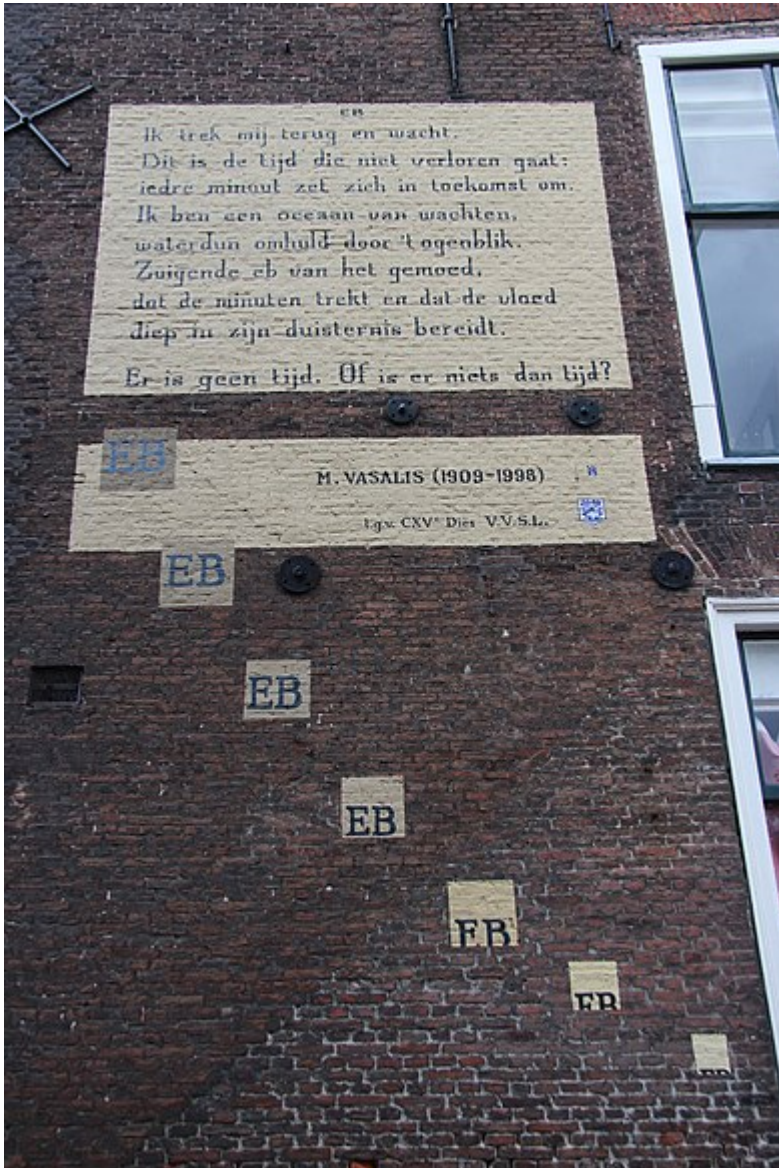 EB
Ik trek mij terug en wacht.
Dit is de tijd die niet verloren gaat:
iedre minuut zet zich in toekomst om.
Ik ben een oceaan van wachten,
waterdun omhuld door 't ogenblik.
Zuigende eb van het gemoed,
dat de minuten trekt en dat de vloed
diep in zijn duisternis bereidt.
Er is geen tijd. Of is er niets dan tijd?
EB
M. VASALIS (1909-1998)
t.g.v. CXVe Dies V.V.S.L.
EB
EB
EB
EB
EB
EB